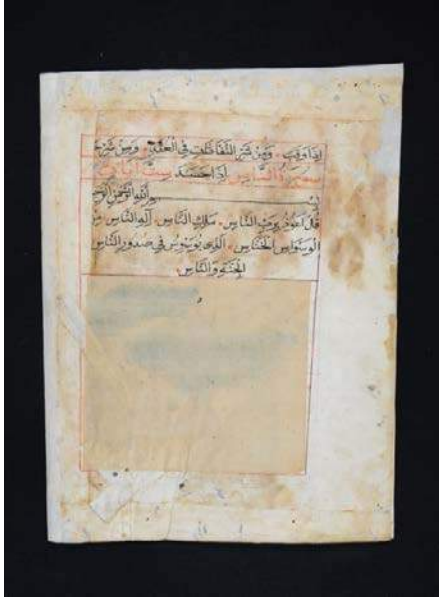 اذا وقب ومن شر النفاثات في العقد ومن شر
سورة الناس ست ايات
بسم الله الرحمن الرحيم
قل اعوذ برب الناس ملك الناس اله الناس من
الوسواس الخناس الذي يوسوس في صدور الناس
الجنة والناس